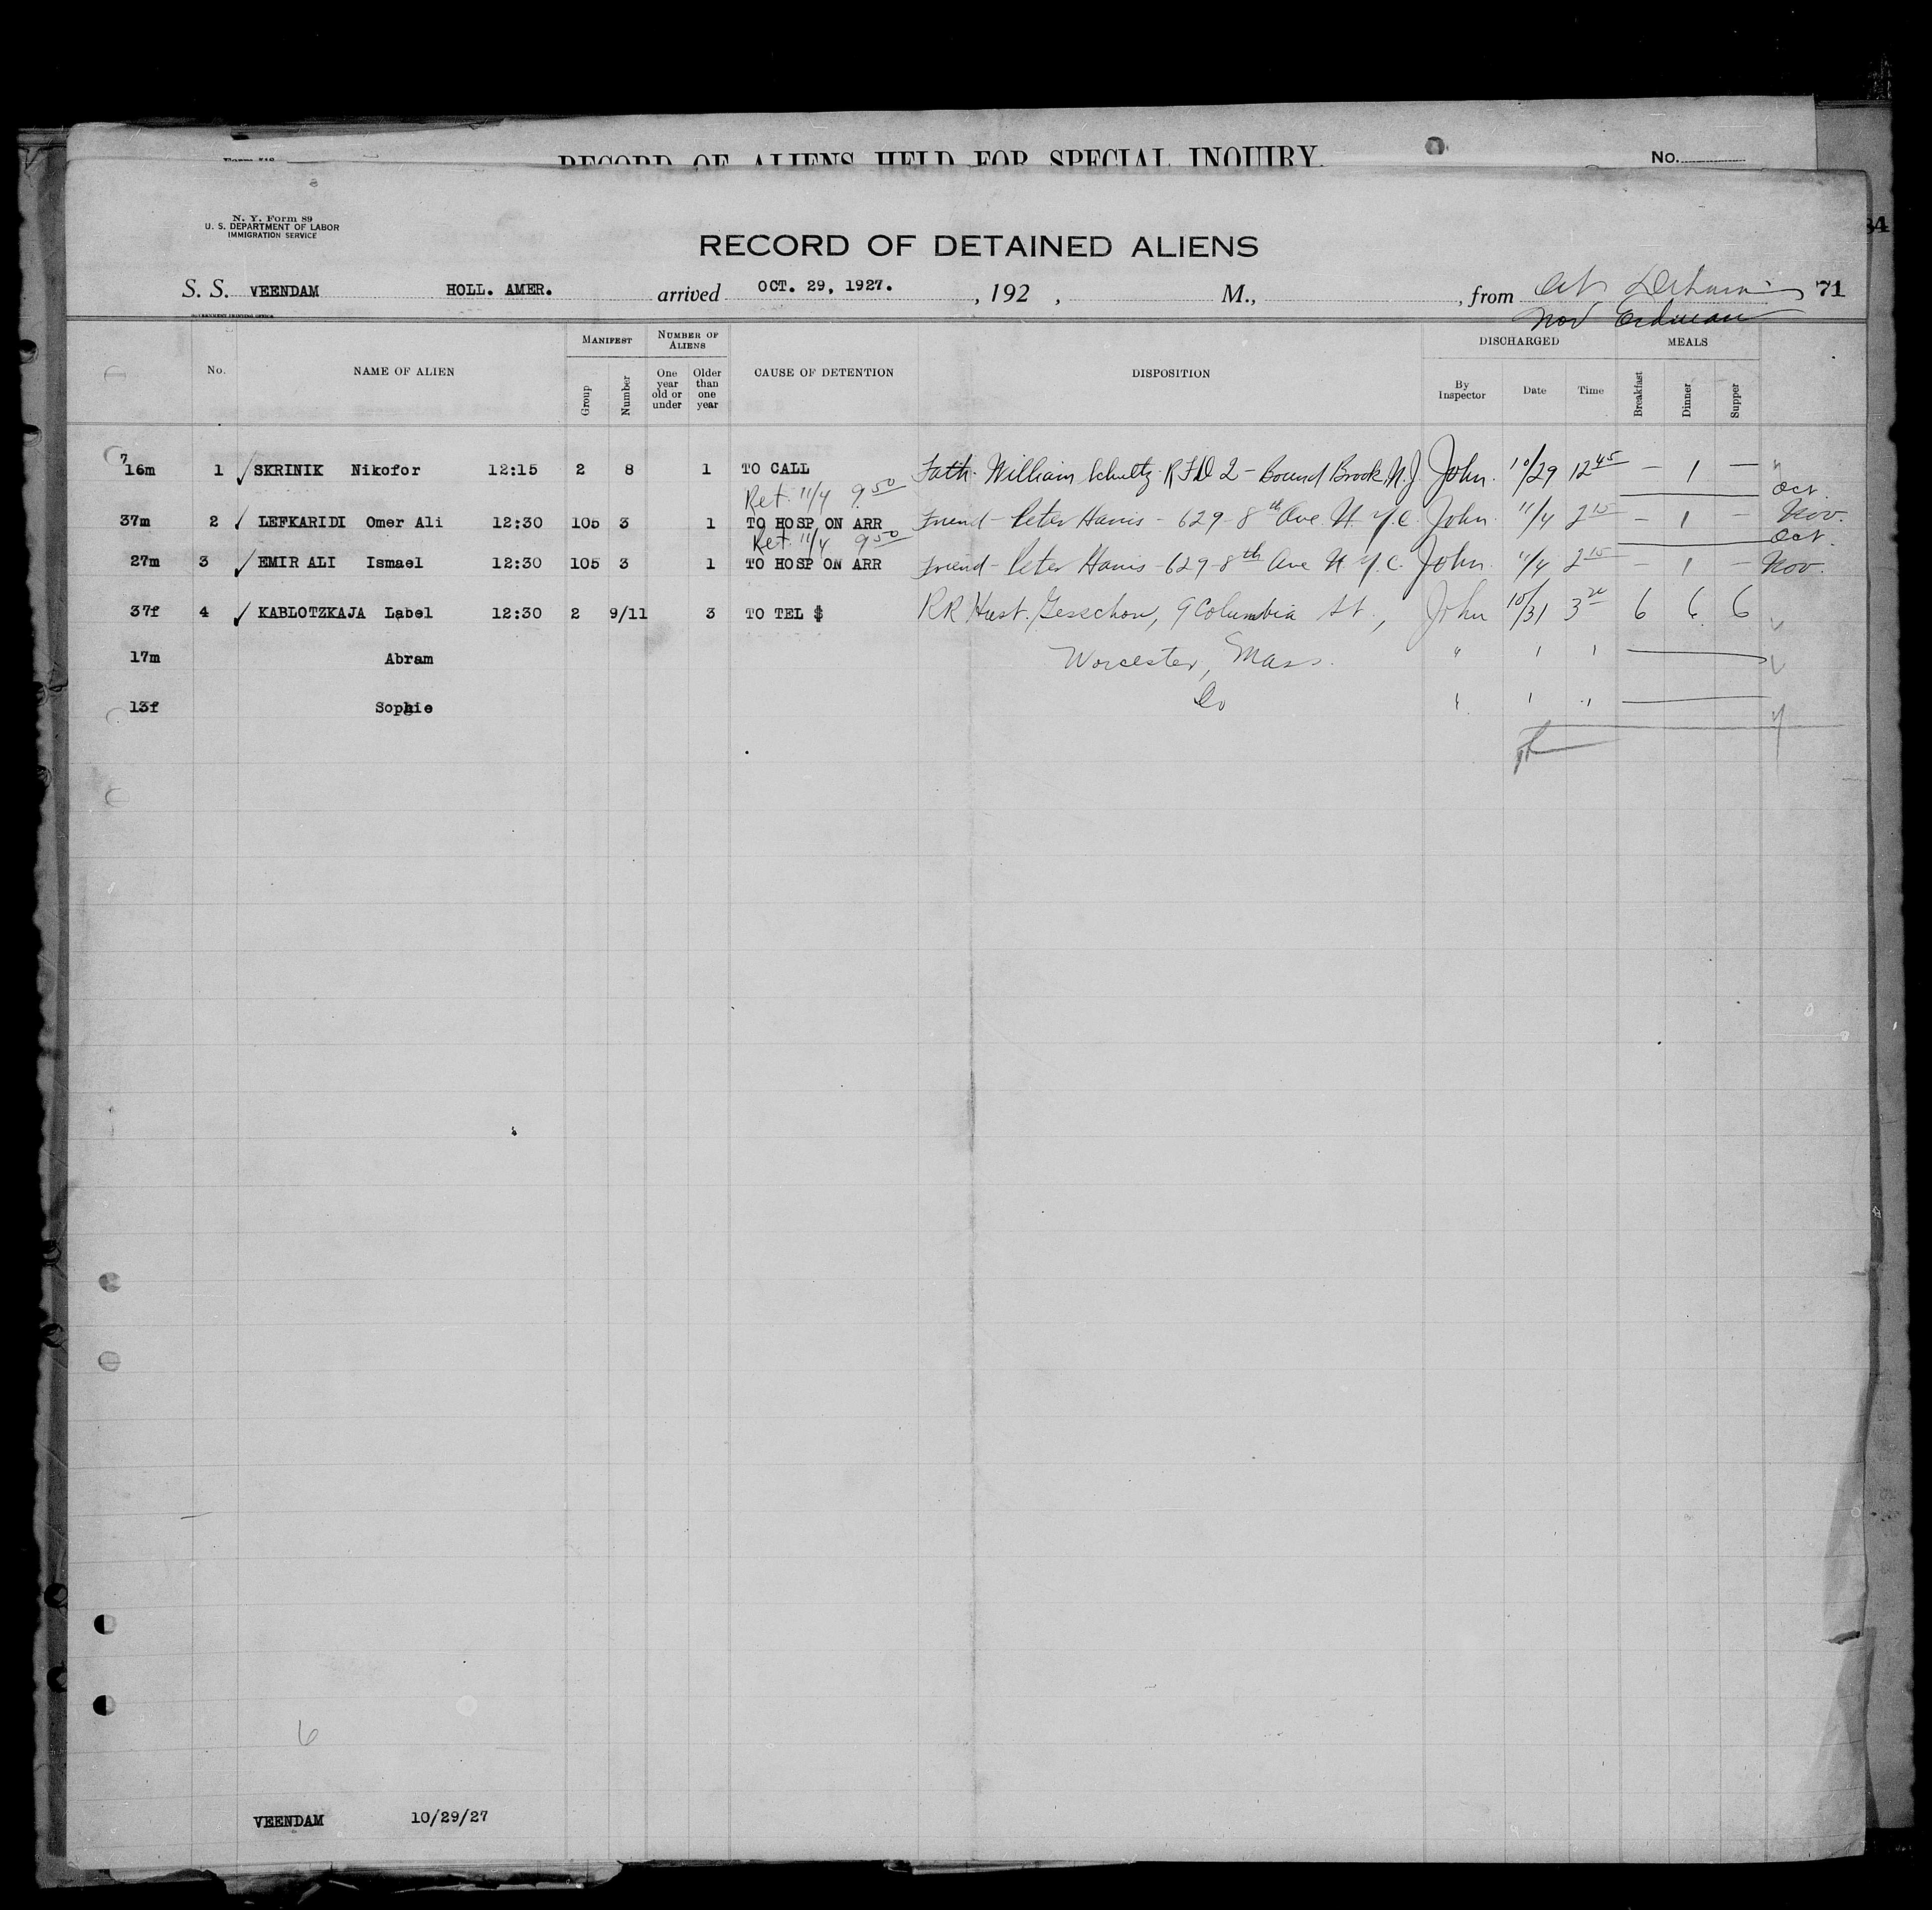 RECORD OF ALIENS HELD FOR SPECIAL INQUIRY.
No.
N. Y. Form 89
U. S. DEPARTMENT OF LABOR
IMMIGRATION SERVICE
84
RECORD OF DETAINED ALIENS
S. S. VEENDAM HOLL. AMER. arrived OCT. 29, 1927. , 192 , M., , from 71
GOVERNMENT PRINTING OFFICE
Nov Erdman
No. NAME OF ALIEN MANIFEST Group Number NUMBER OF ALIENS One year old or under Older than one year CAUSE OF DETENTION DISPOSITION DISCHARGED By Inspector Date Time MEALS Breakfast Dinner Supper
7
16m 1 ✓ SKRINIK Nikofor 12:15 2 8 1 TO CALL Fath. William Schultz R F D 2 - Bound Brook, N.J. John. 10/29 12 45 — 1 — "
Ret. 11/4 9 50 Oct.
37m 2 ✓ LEFKARIDI Omer Ali 12:30 105 3 1 TO HOSP ON ARR Friend - Peter Harris - 629 - 8th Ave. N. Y. C. John. 11/4 2 15 — 1 — Nov.
Ret. 11/4 9 50 Oct.
27m 3 ✓ EMIR ALI Ismael 12:30 105 3 1 TO HOSP ON ARR Friend - Peter Harris - 629 - 8th Ave N. Y. C. John. 11/4 2 15 — 1 — Nov.
37f 4 ✓ KABLOTZKAJA Label 12:30 2 9/11 3 TO TEL $ RR Husb. Gesschon, 9 Columbia St., John 10/31 3 20 6 6 6 ✓
17m Abram Worcester, Mass. " " " ✓
13f Sophie Do " " "
6
VEENDAM 10/29/27